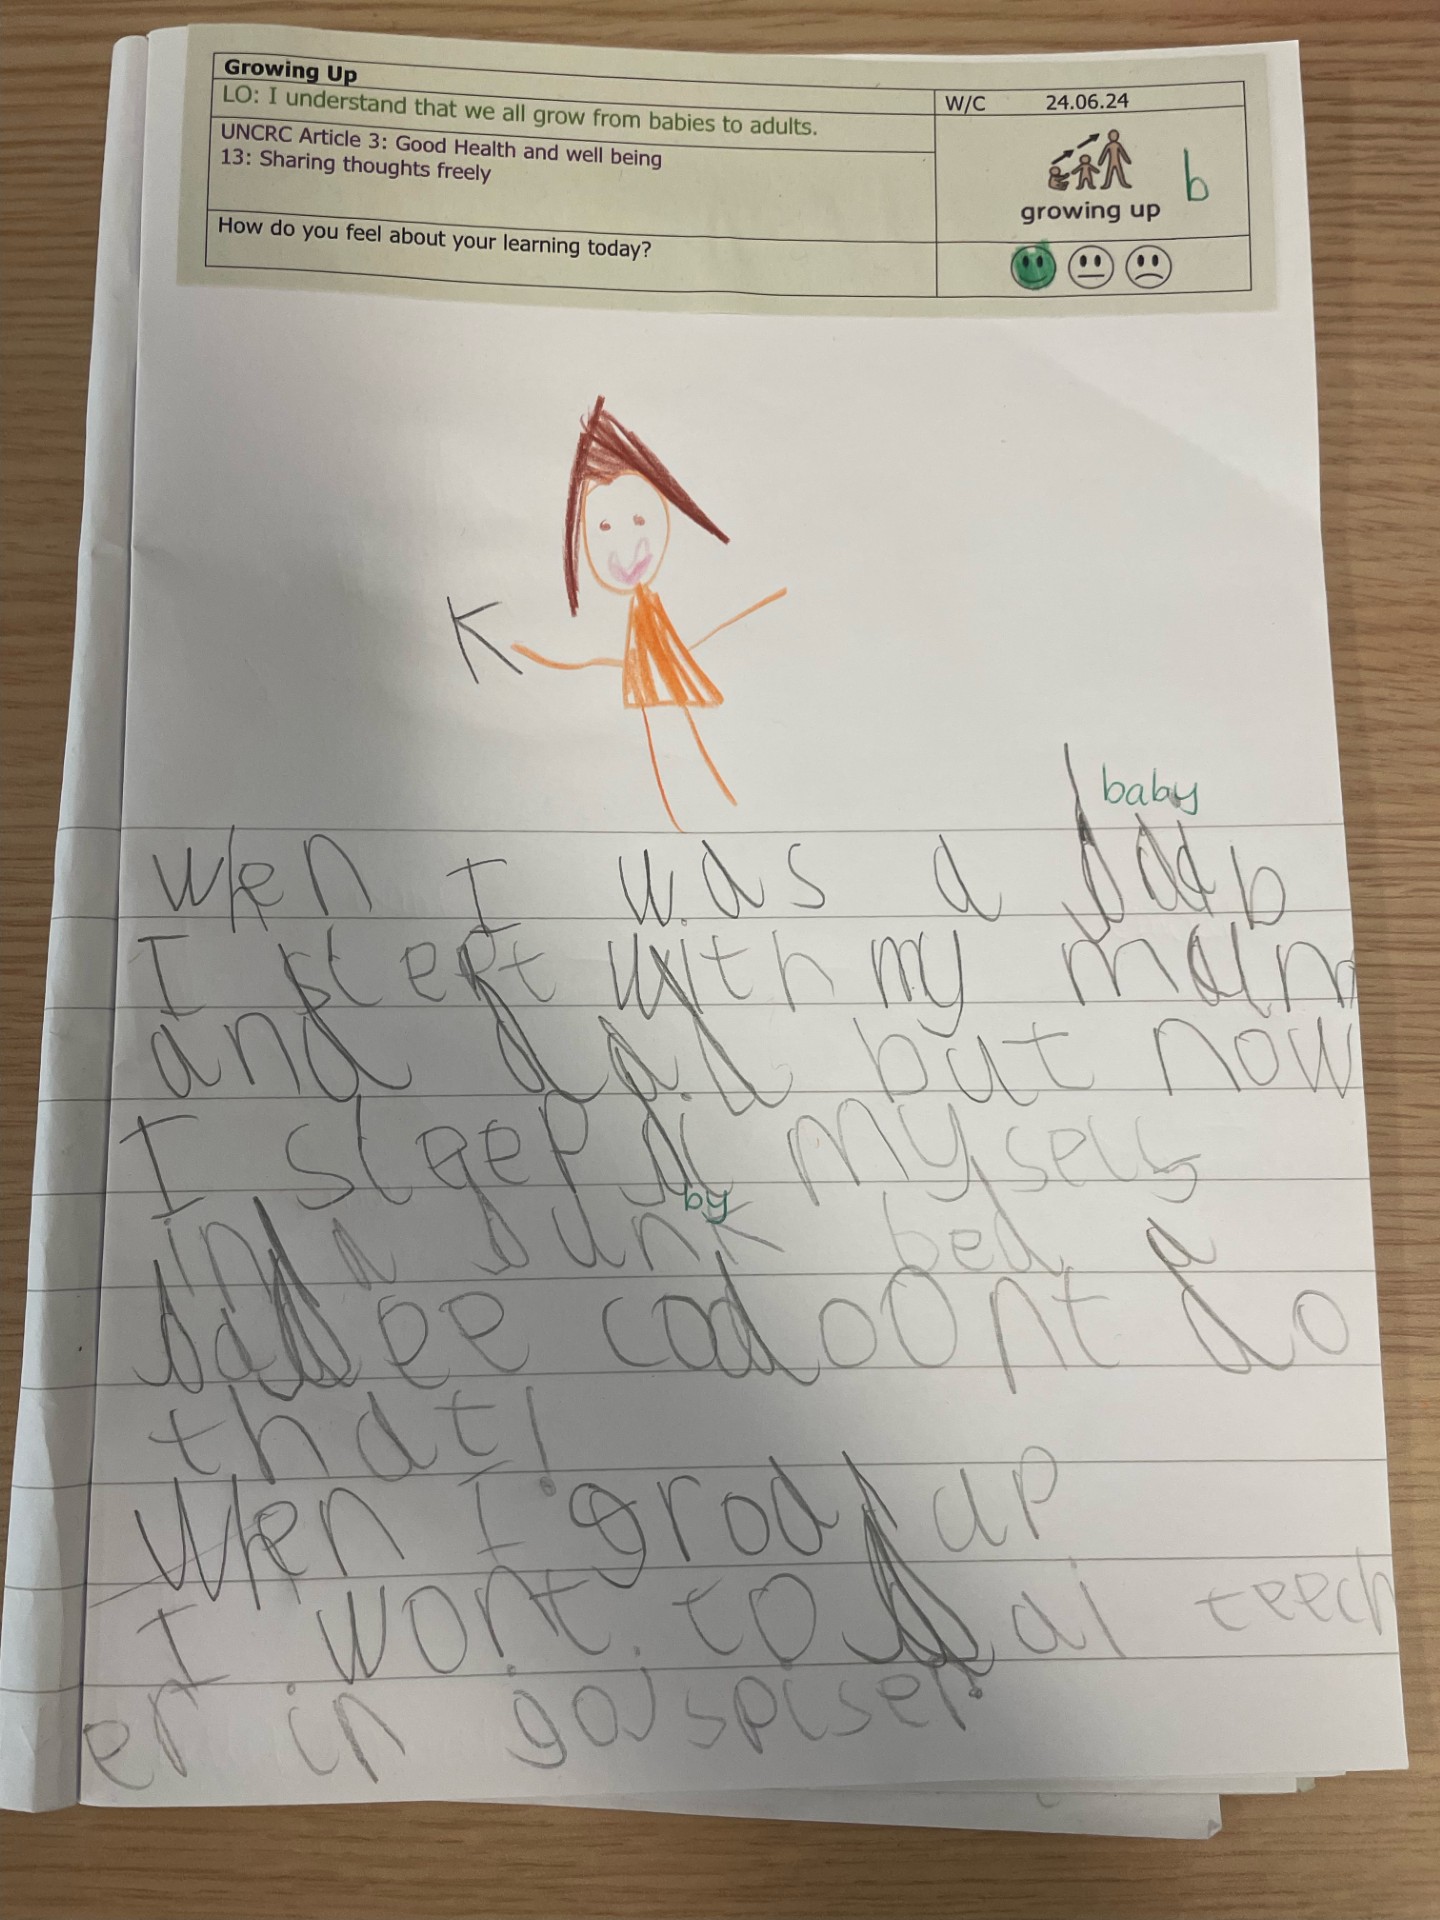 Growing Up
LO: I understand that we all grow from babies to adults.
W/C 24.06.24
UNCRC Article 3: Good Health and well being
13: Sharing thoughts freely
growing up
b
How do you feel about your learning today?
K
baby
when I was a
I slept with my
and dad but now
I sleep myself
by
in a bunk bed a
do
that!
When I up
I wont to teech
er in